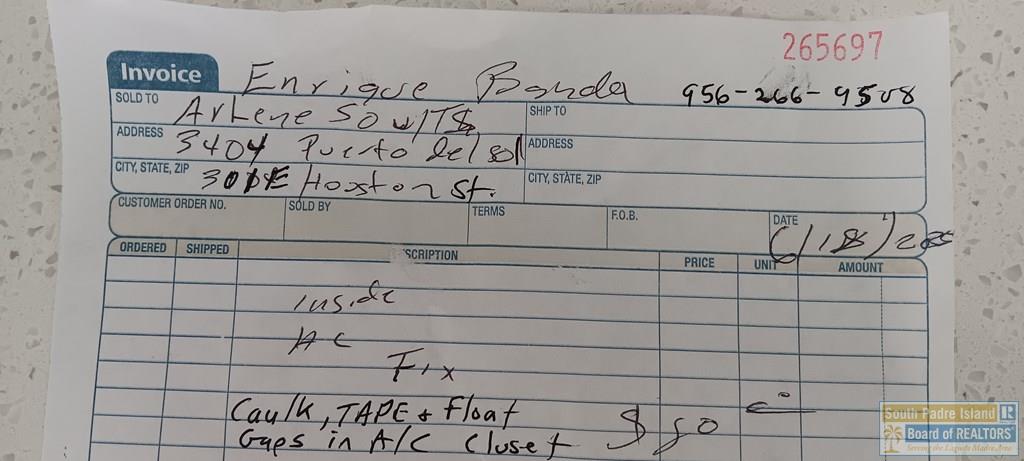 265697
Invoice Enrique Banda 956-266-9508
SOLD TO Arlene SHIP TO
ADDRESS 3404 Puerto del sol ADDRESS
CITY, STATE, ZIP Hoxton St. CITY, STATE, ZIP
CUSTOMER ORDER NO. SOLD BY TERMS F.O.B. DATE
ORDERED SHIPPED SCRIPTION PRICE UNIT AMOUNT
inside
AC
Fix
Caulk, TAPE & Float
Gaps in A/C Closet $
South Padre Island R
Board of REALTORS®
Serving the Laguna Madre Area